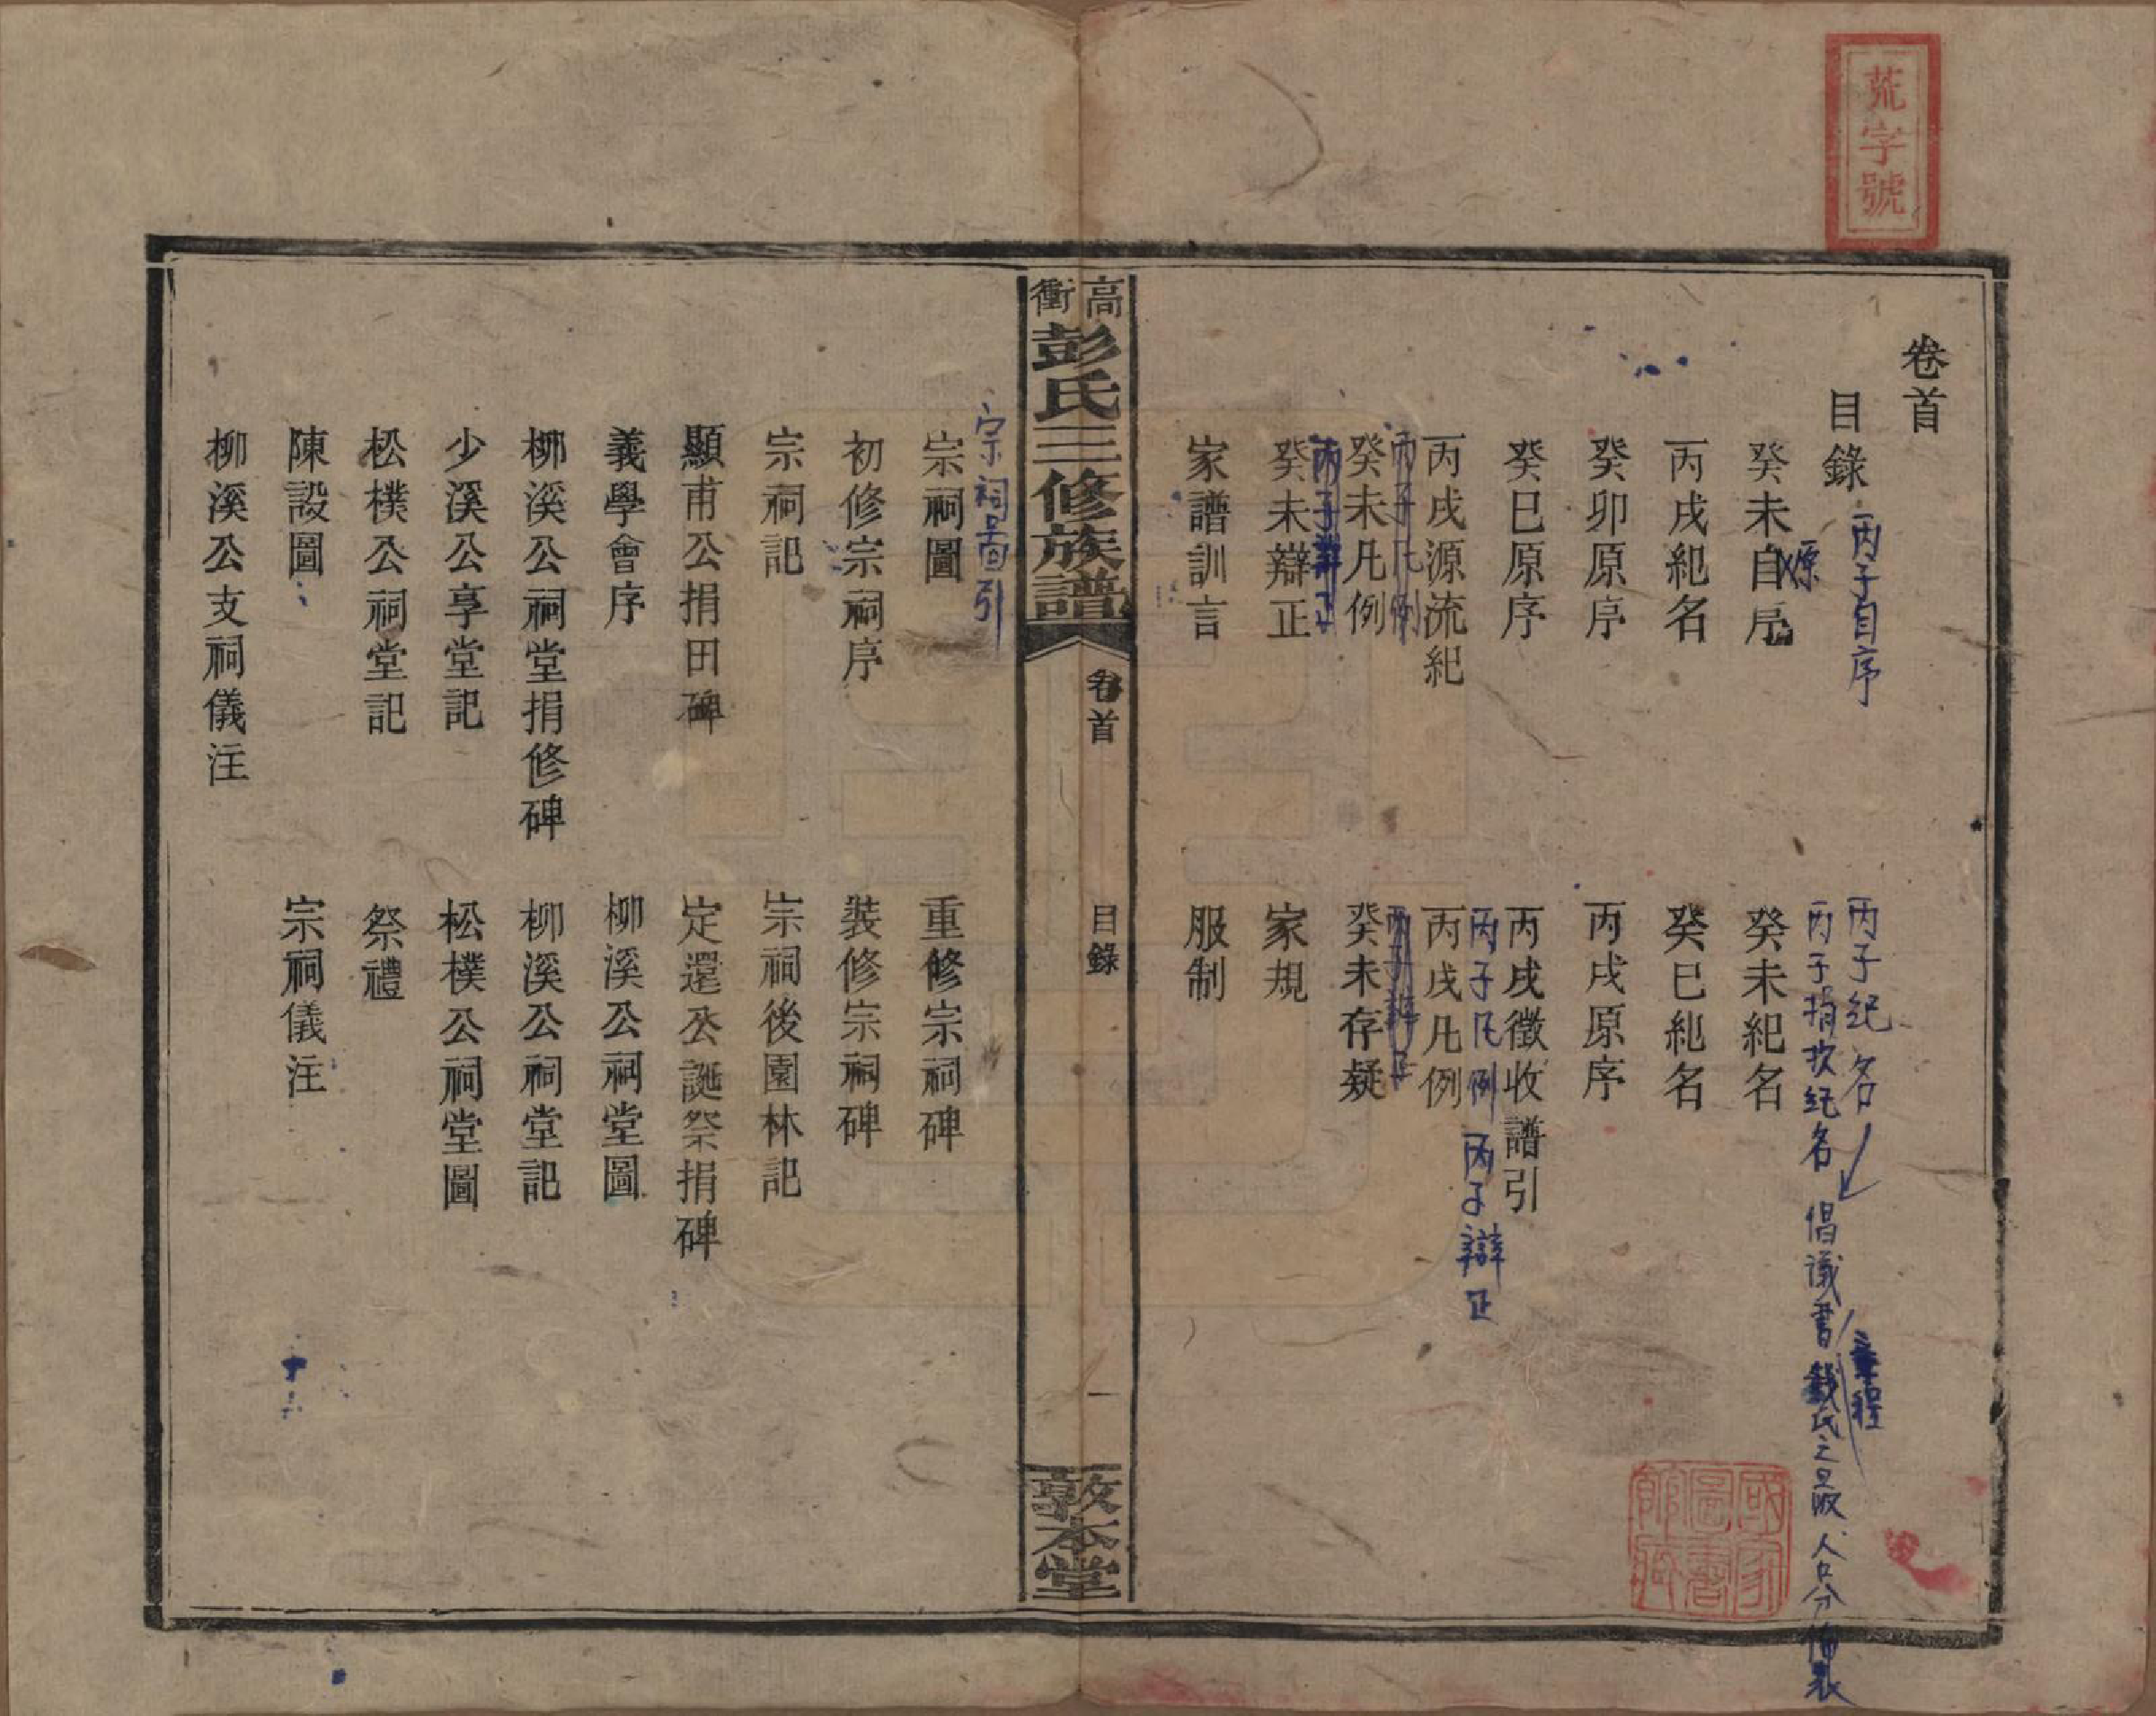 荒字號
卷首
目錄
丙子自序
丙子紀名
丙子捐欵紀名
倡議書
章程
人口分佈表
癸未自序
原
癸未紀名
丙戌紀名
癸巳紀名
癸卯原序
丙戌原序
癸巳原序
丙戌徵收譜引
丙戌源流紀
丙子凡例
丙子辯正
丙戌凡例
丙子凡例
癸未凡例
癸未存疑
癸未辯正
家規
家譜訓言
服制
國家圖書館藏
高衝彭氏三修族譜
卷首
目錄
一
敦本堂
宗祠圖引
宗祠圖
重修宗祠碑
初修宗祠序
裝修宗祠碑
宗祠記
宗祠後園林記
顯甫公捐田碑
定還公誕祭捐碑
義學會序
柳溪公祠堂圖
柳溪公祠堂捐修碑
柳溪公祠堂記
少溪公享堂記
松樸公祠堂圖
松樸公祠堂記
祭禮
陳設圖
宗祠儀注
柳溪公支祠儀注